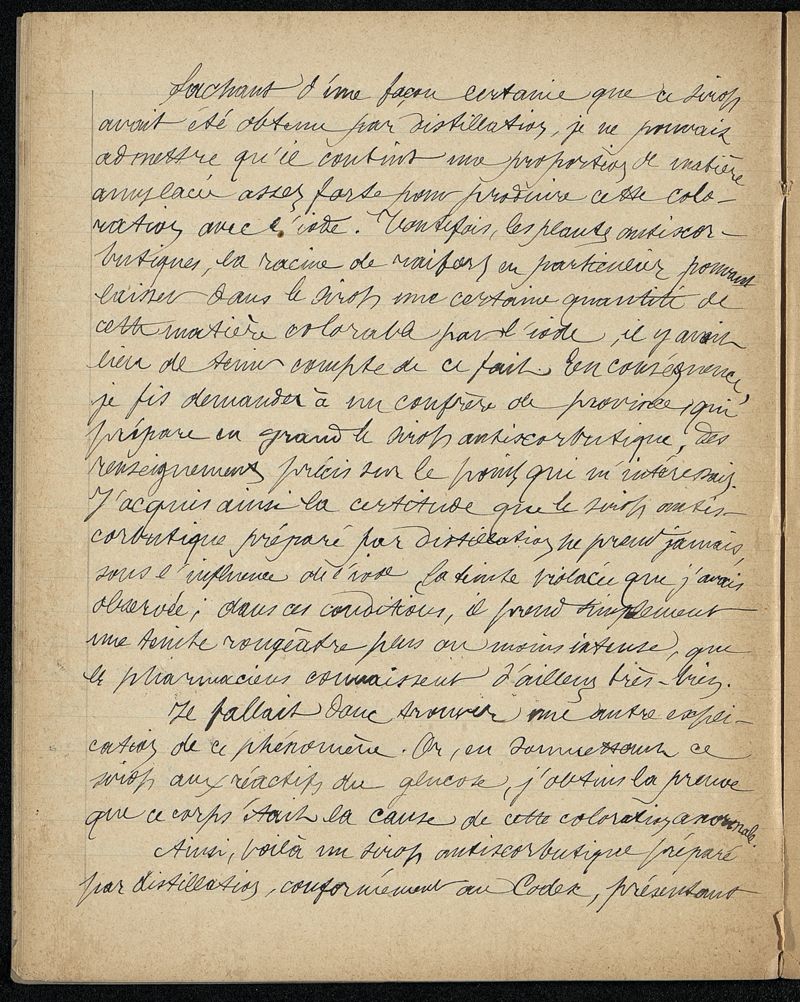 Sachant d'une façon certaine que ce sirop
avait été obtenu par distillation, je ne pouvais
admettre qu'il contint une proportion de matière
amylacée assez forte pour produire cette colo-
ration avec l'iode. Toutefois, les plantes antiscor-
butiques, la racine de raifort en particulier, pouvant
laisser dans le sirop une certaine quantité de
cette matière colorable par l'iode, il y avait
lieu de tenir compte de ce fait. En conséquence,
je fis demander à un confrère de province, qui
prépare en grand le sirop antiscorbutique, des
renseignements précis sur le point qui m'intéressait.
J'acquis ainsi la certitude que le sirop antis-
corbutique préparé par distillation ne prend jamais,
sous l'influence de l'iode la teinte violacée que j'avais
observée; dans ces conditions, il prend simplement
une teinte rougeâtre plus ou moins intense, que
les pharmaciens connaissent d'ailleurs très-bien.
Il fallait donc trouver une autre expli-
cation de ce phénomène. Or, en soumettant ce
sirop aux réactifs du glucose, j'obtins la preuve
que ce corps était la cause de cette coloration anormale.
Ainsi, voilà un sirop antiscorbutique préparé
par distillation, conformément au Codex, présentant